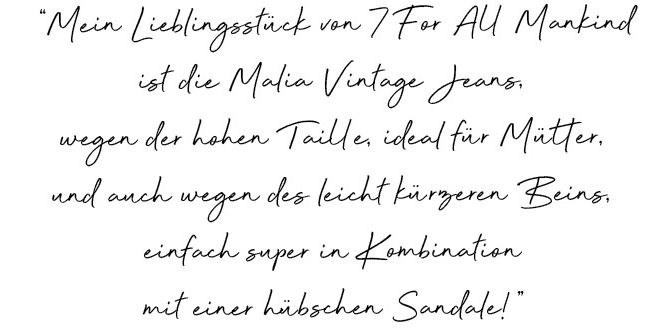 “Mein Lieblingsstück von 7 For All Mankind
ist die Malia Vintage Jeans,
wegen der hohen Taille, ideal für Mütter,
und auch wegen des leicht kürzeren Beins,
einfach super in Kombination
mit einer hübschen Sandale!”